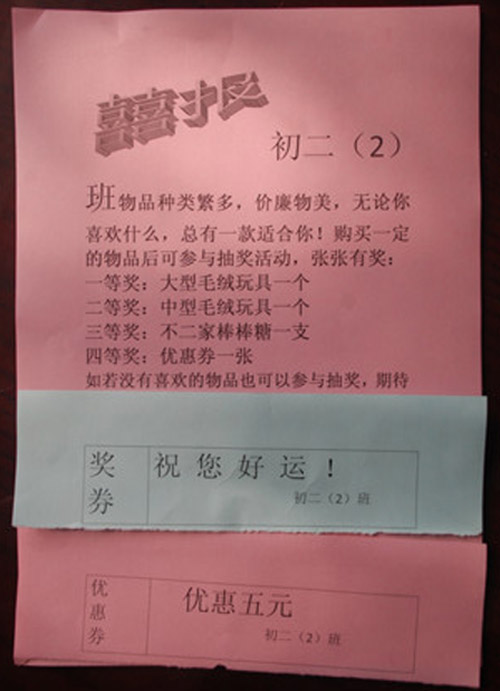 囍报
初二（2）
班物品种类繁多，价廉物美，无论你
喜欢什么，总有一款适合你！购买一定
的物品后可参与抽奖活动，张张有奖：
一等奖：大型毛绒玩具一个
二等奖：中型毛绒玩具一个
三等奖：不二家棒棒糖一支
四等奖：优惠券一张
如若没有喜欢的物品也可以参与抽奖，期待
奖券
祝您好运！
初二（2）班
优惠券
优惠五元
初二（2）班